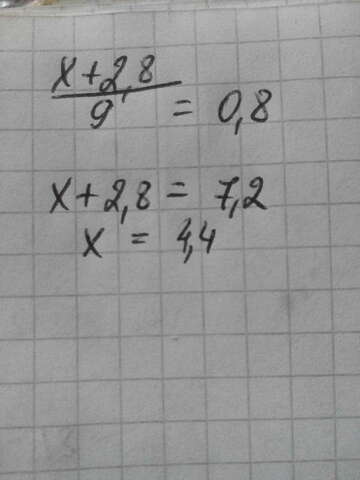 x+2,8
9
= 0,8
x+2,8 = 7,2
x = 4,4